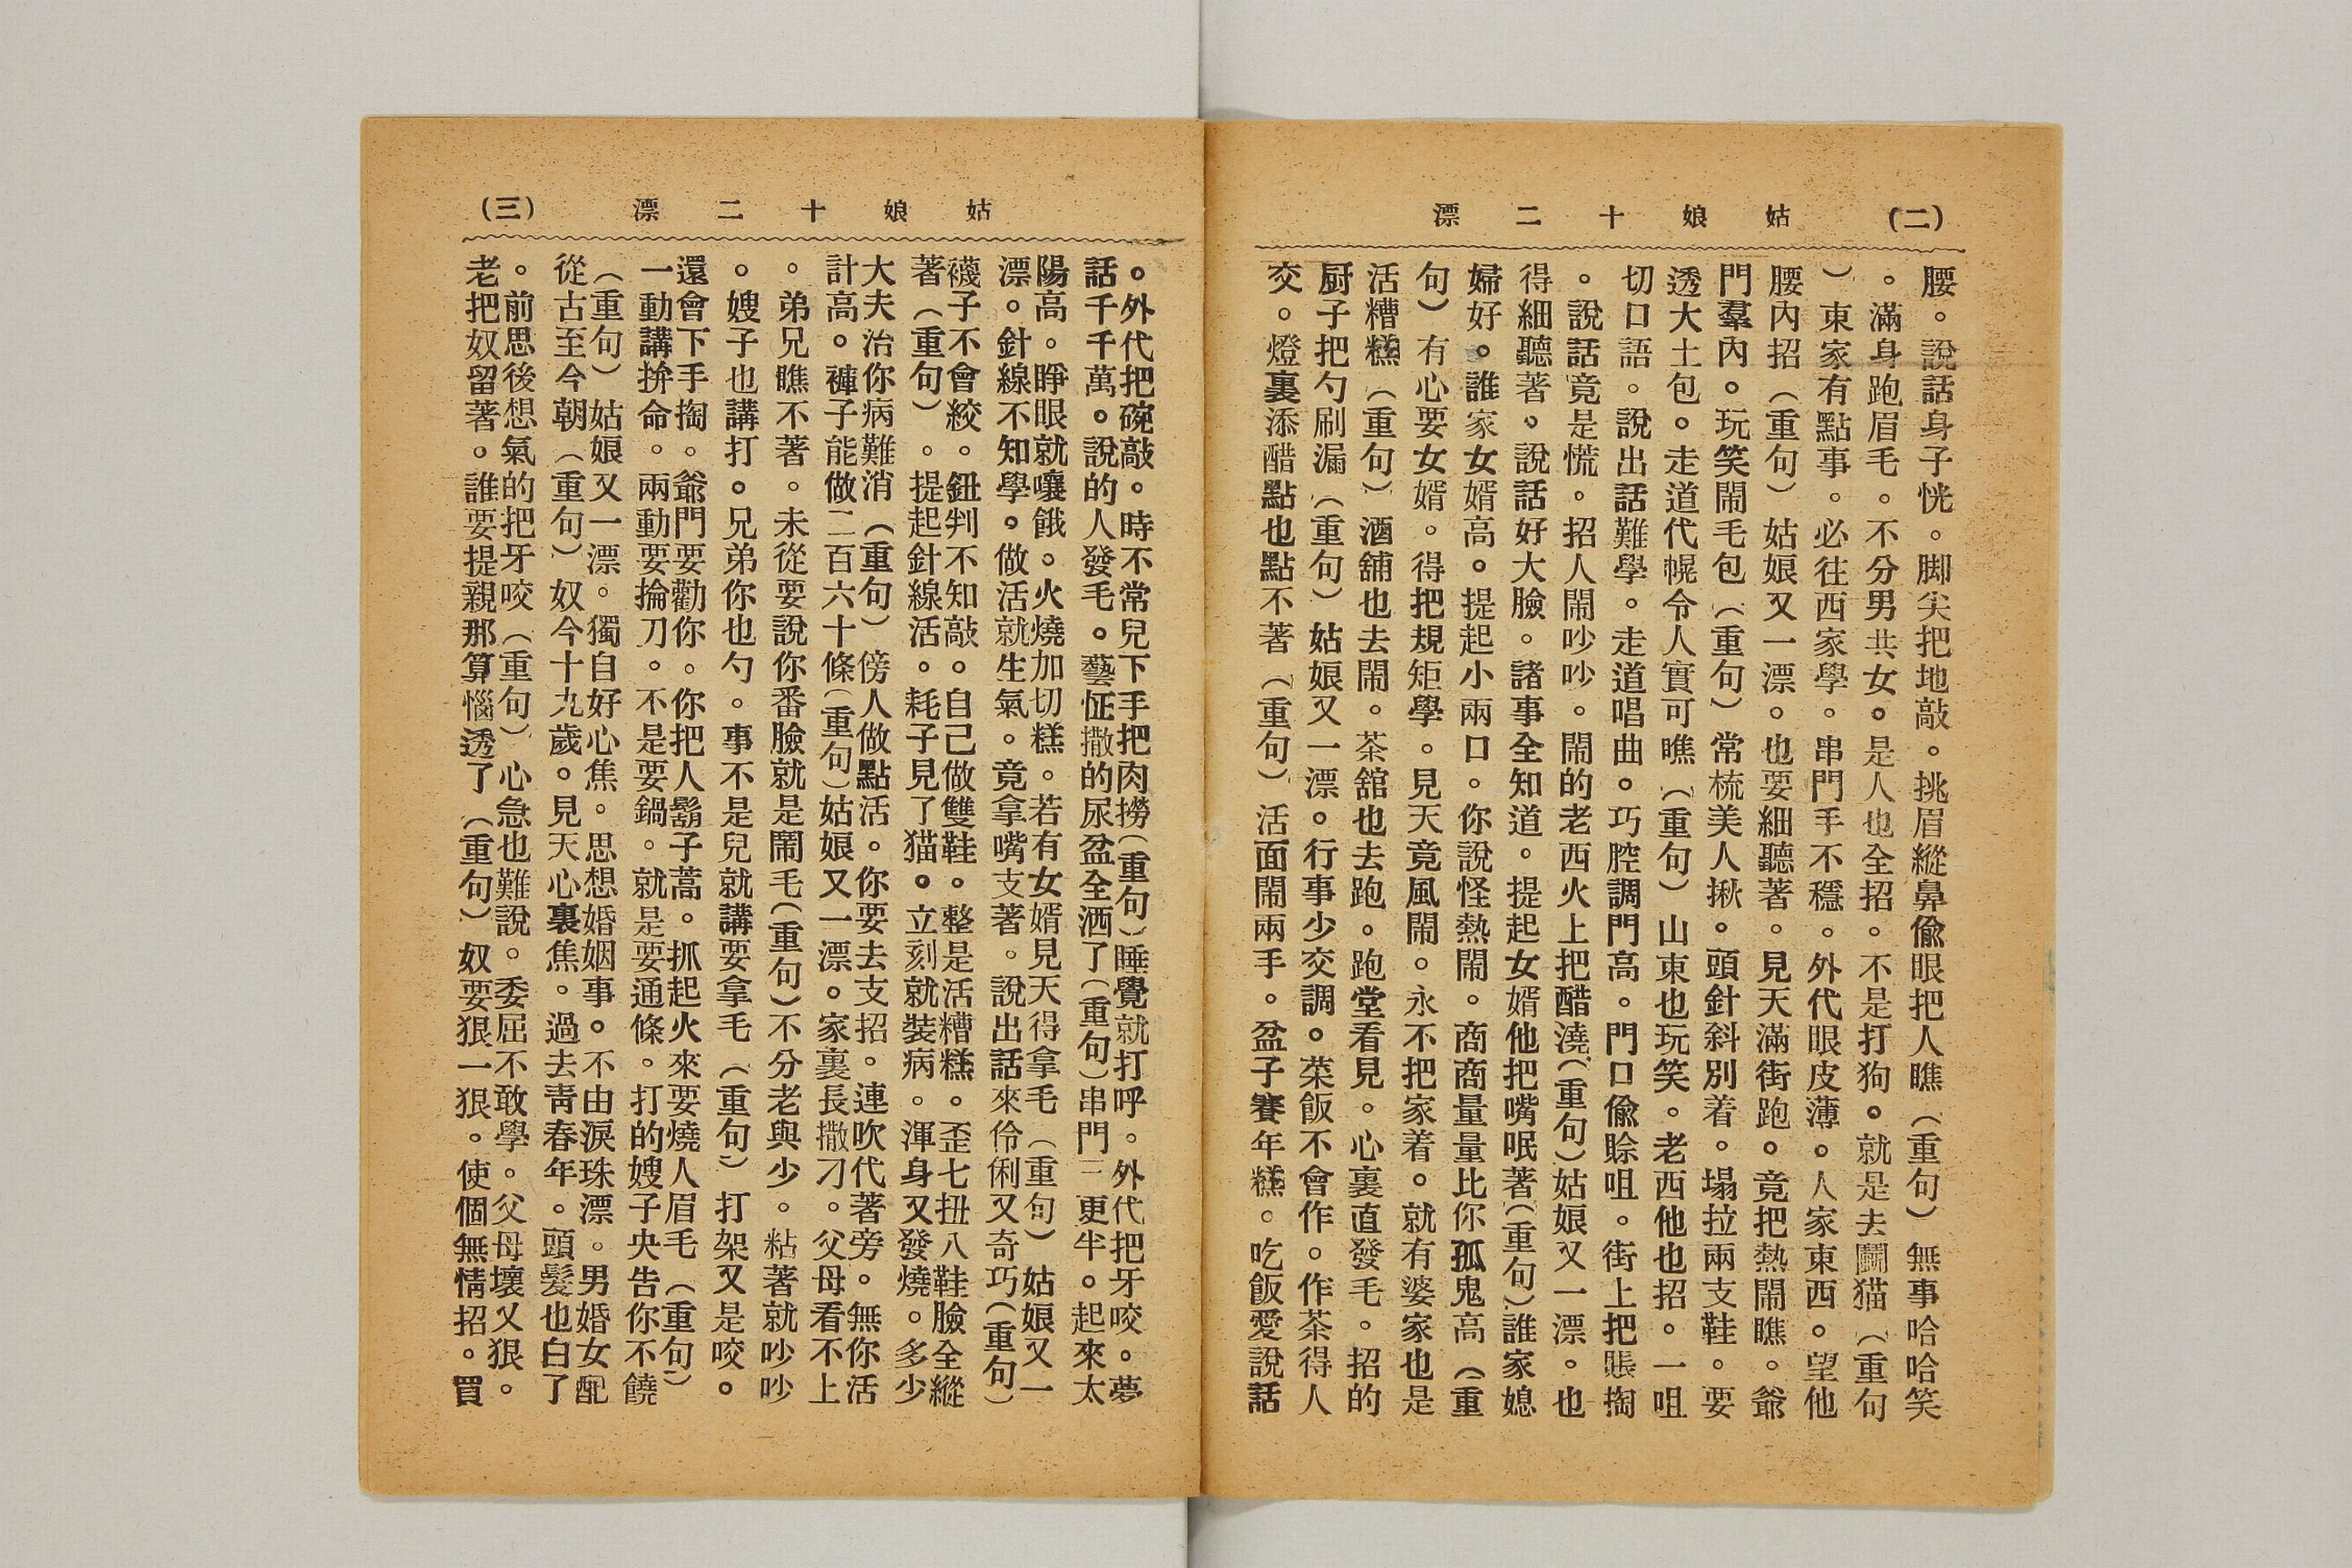 (二)　姑娘十二漂
腰。說話身子恍。脚尖把地敲。挑眉縱鼻偸眼把人瞧（重句）無事哈哈笑
。滿身跑眉毛。不分男共女。是人也全招。不是打狗。就是去鬪猫（重句
）東家有點事。必往西家學。串門手不穩。外代眼皮薄。人家東西。望他
腰內招（重句）姑娘又一漂。也要細聽著。見天滿街跑。竟把熱鬧瞧。爺
門羣內。玩笑鬧毛包（重句）常梳美人揪。頭針斜別着。塌拉兩支鞋。要
透大土包。走道代幌令人實可瞧（重句）山東也玩笑。老西他也招。一咀
切口語。說出話難學。走道唱曲。巧腔調門高。門口偸賒咀。街上把賬掏
。說話竟是慌。招人鬧吵吵。鬧的老西火上把醋澆（重句）姑娘又一漂。也
得細聽著。說話好大臉。諸事全知道。提起女婿他把嘴眠著（重句）誰家媳
婦好。誰家女婿高。提起小兩口。你說怪熱鬧。商商量量比你孤鬼高（重
句）有心要女婿。得把規矩學。見天竟風鬧。永不把家着。就有婆家也是
活糟糕（重句）酒舖也去鬧。茶舘也去跑。跑堂看見。心裏直發毛。招的
厨子把勺刷漏（重句）姑娘又一漂。行事少交調。菜飯不會作。作茶得人
交。燈裏添醋點也點不著（重句）活面鬧兩手。盆子賽年糕。吃飯愛說話
(三)　姑娘十二漂
。外代把碗敲。時不常兒下手把肉撈（重句）睡覺就打呼。外代把牙咬。夢
話千千萬。說的人發毛。藝怔撒的尿盆全洒了（重句）串門三更半。起來太
陽高。睜眼就嚷餓。火燒加切糕。若有女婿見天得拿毛（重句）姑娘又一
漂。針線不知學。做活就生氣。竟拿嘴支著。說出話來伶俐又奇巧（重句）
襪子不會絞。鈕判不知敲。自己做雙鞋。整是活糟糕。歪七扭八鞋臉全縱
著（重句）。提起針線活。耗子見了猫。立刻就裝病。渾身又發燒。多少
大夫治你病難消（重句）傍人做點活。你要去支招。連吹代著旁。無你活
計高。褲子能做二百六十條（重句）姑娘又一漂。家裏長撒刁。父母看不上
。弟兄瞧不著。未從要說你番臉就是鬧毛（重句）不分老與少。粘著就吵吵
。嫂子也講打。兄弟你也勺。事不是兒就講要拿毛（重句）打架又是咬。
還會下手掏。爺門要勸你。你把人鬍子蒿。抓起火來要燒人眉毛（重句）
一動講拚命。兩動要掄刀。不是要鍋。就是要通條。打的嫂子央告你不饒
（重句）姑娘又一漂。獨自好心焦。思想婚姻事。不由淚珠漂。男婚女配
從古至今朝（重句）奴今十九歲。見天心裏焦。過去靑春年。頭髮也白了
。前思後想氣的把牙咬（重句）心急也難說。委屈不敢學。父母壞又狠。
老把奴留著。誰要提親那算惱透了（重句）奴要狠一狠。使個無情招。買